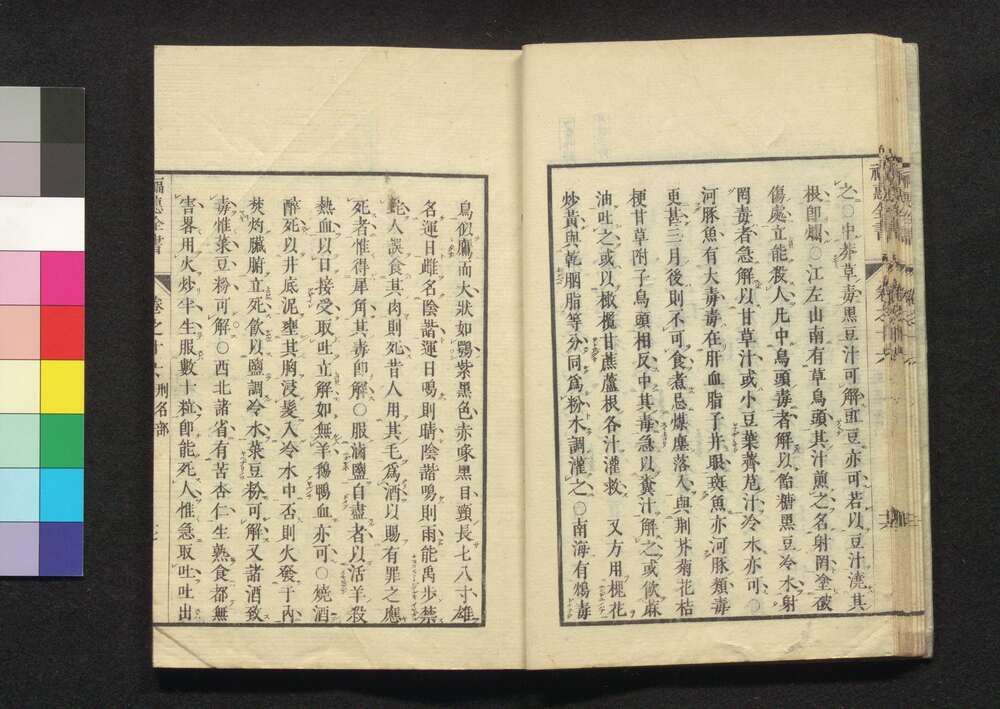 之○中芥草毒黑豆汁可解豇豆亦可若以豆汁澆其
根卽爛○江左山南有草烏頭其汁煎之名射罔塗箭
傷處立能殺人凡中烏頭毒者解以飴糖黑豆冷水射
罔毒者急解以甘草汁或小豆葉薺苨汁冷水亦可○
河豚魚有大毒毒在肝血脂子幷眼斑魚亦河豚類毒
更甚三月後則不可食煮忌煤塵落入與荆芥菊花桔
梗甘草附子烏頭相反中其毒急以糞汁解之或飮麻
油吐之或以橄欖甘蔗蘆根各汁灌救 又方用槐花
炒黃與乾胭脂等分同爲粉水調灌之○南海有鴆毒
鳥似鷹而大狀如鶚紫黑色赤喙黑目頸長七八寸雄
名運日雌名陰諧運日鳴則晴陰諧鳴則雨能禹步禁
蛇人誤食其肉則死昔人用其毛爲酒以賜有罪之應
死者惟得犀角其毒卽解○服滷鹽自盡者以活羊殺
熱血以口接受取吐立解如無羊鵝鴨血亦可○燒酒
醉死以井底泥壅其胸浸髮入冷水中否則火發于內
焚灼臟腑立死飮以鹽調冷水菉豆粉可解又諸酒致
毒惟菉豆粉可解○西北諸省有苦杏仁生熟食都無
害畧用火炒半生服數十粒卽能死人惟急取吐吐出
福惠全書 卷之十六 刑名部